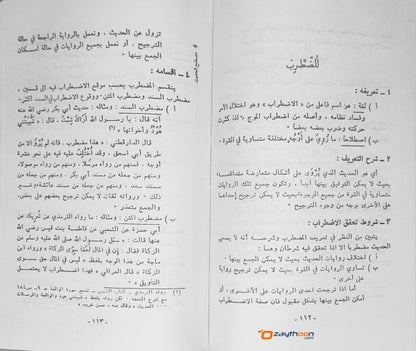 المُضْطَرِب
١ - تعريفه :
أ ) لغة : هو اسم فاعل من « الاضطراب » وهو اختلال الأمر
وفساد نظامه ، وأصله من اضطراب الموج ، اذا كثرت
حركته وضرب بعضه بعضا .
ب) اصطلاحاً : ما رُوِيَ على أَوْجُهٍ مختلفة متساوية في القوة .
٢ - شرح التعريف :
أي هو الحديث الذي يُرْوَى على أشكال متعارضة متدافعة،
بحيث لا يمكن التوفيق بينها أبداً ، وتكون جميع تلك الروايات
متساوية في القوة من جميع الوجوه بحيث لا يمكن ترجيح إحداها
على الأخرى بوجه من وجوه الترجيح .
٣ - شروط تحقق الاضطراب :
يتبين من النظر في تعريف المضطرب وشرحه أنه لا يسمى
الحديث مضطربا إلا اذا تحقق فيه شرطان وهما :
أ ) اختلاف روايات الحديث بحيث لا يمكن الجمع بينها .
ب) تساوي الروايات في القوة بحيث لا يمكن ترجيح رواية
على أخرى .
أما اذا ترجحت احدى الروايات على الأخرى ، أو
أمكن الجمع بينها بشكل مقبول فان صفة الاضطراب
- ١١٢ -
تزول عن الحديث ، ونعمل بالرواية الراجحة في حالة
الترجيح ، أو نعمل بجميع الروايات في حالة امكان
الجمع بينها .
٤ - أقسامه :
ينقسم المضطرب بحسب موقع الاضطراب فيه الى قسمين ،
مضطرب السند ومضطرب المتن ، ووقوع الاضطراب في السند أكثر.
أ ) مضطرب السند : ومثاله : حديث أبي بكر رضي الله عنه
أنه قال : يا رسول الله أراك شِبْتَ ، قال : « شَيَّبَتْني
هودٌ وأخواتها »(١)
قال الدارقطني : هذا مضطرب ، فانه لم يُرْوَ الا من
طريق أبي اسحق ، وقد اخْتُلِفَ عليه فيه على نحو عشرة
أوجه ، فمنهم من رواه مرسلا ، ومنهم من رواه موصولا،
ومنهم من جعله من مسند أبي بكر ، ومنهم من جعله من
مسند سعد ، ومنهم من جعله من مسند عائشة، وغير
ذلك ، ورواته ثقات لا يمكن ترجيح بعضهم على بعض،
والجمع متعذر .
ب ) مضطرب المتن : ومثاله : ما رواه الترمذي عن شريك عن
أبي حمزة عن الشعبي عن فاطمة بنت قيس رضي الله
عنها قالت : سئل رسول الله صلى الله عليه وسلم عن
الزكاة فقال : « إن في المال لحقا سوى الزكاة » ورواه ابن
ماجه من هذا الوجه بلفظ « ليس في المال حق سوى
الزكاة » قال العراقي « فهذا اضطراب لا يحتمل
التأويل » .
- ١١٣ -
zaythoon.com